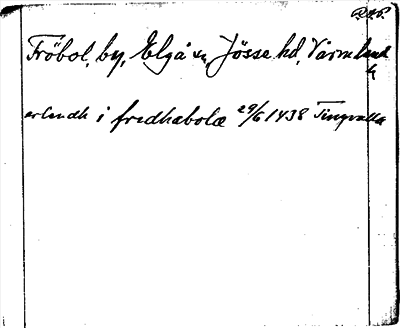 Fröbol, by, Elgå sn Jösse hd, Värmland
erlendh i fredhabolæ 29/6 1438 Tingvalla